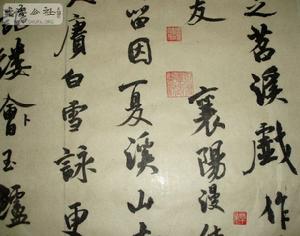 之苕溪戲作
友 襄陽漫仕
留因夏溪山
賡白雪詠更
縷會玉鱸